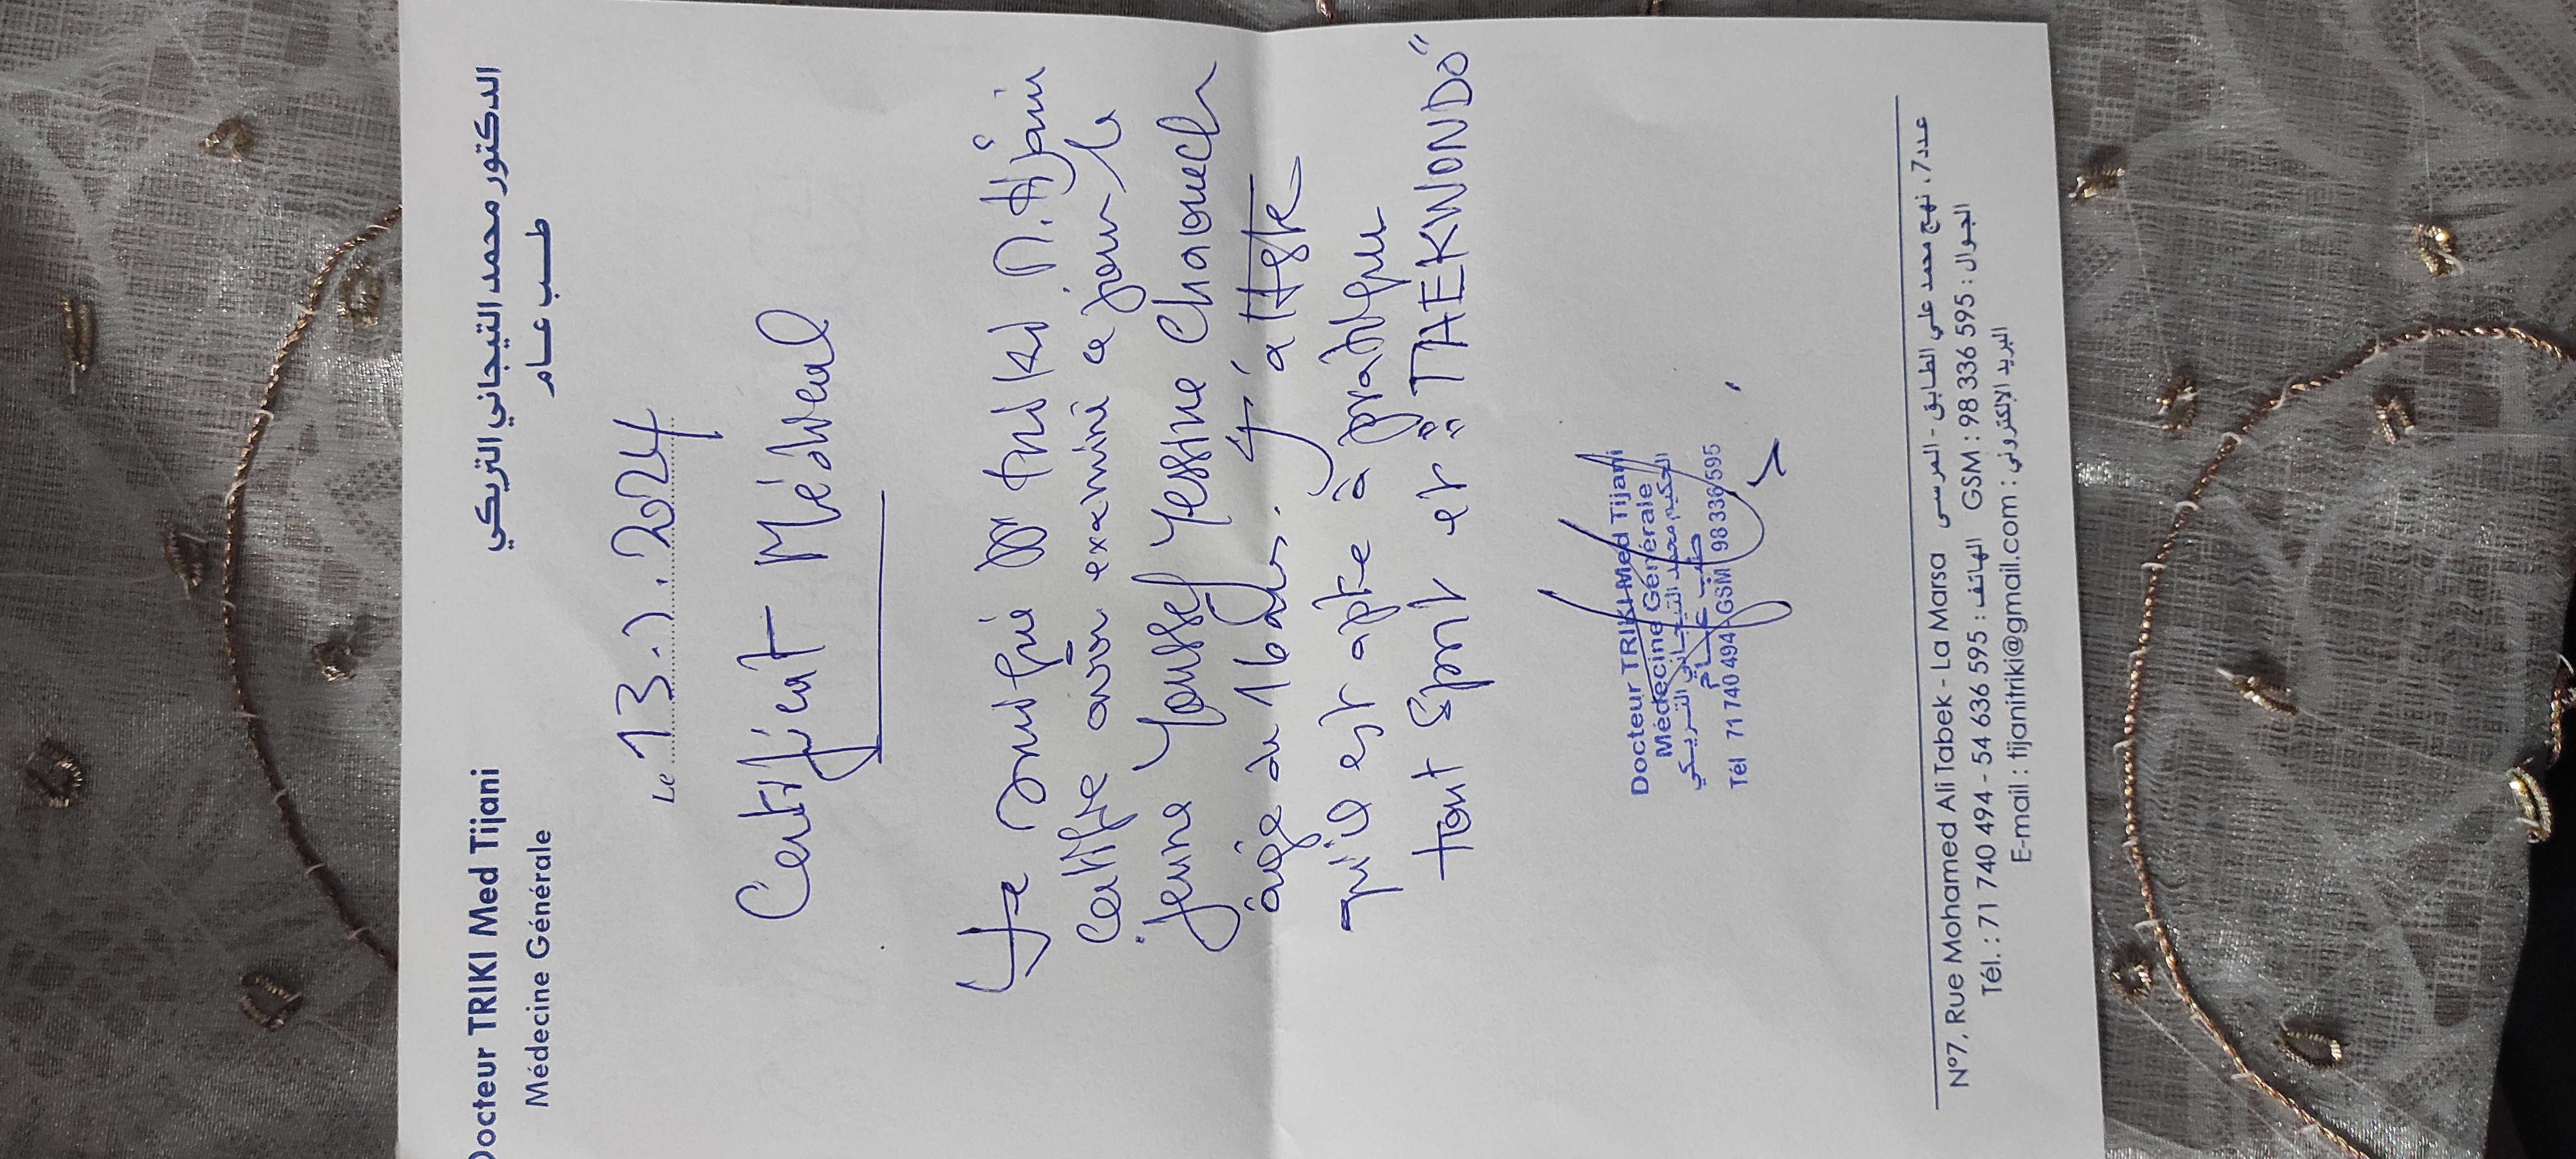 Docteur TRIKI Med Tijani
Médecine Générale
الدكتور محمد التيجاني التريكي
طب عام
Le 13. . 2024
Certificat Médical
Je soussigné Dr Triki M. Tijani
Certifie avoir examiné ce jour le
jeune Youssef Yessine Chaouech
âgé de 16 ans. j'atteste
qu'il est apte à pratiquer
tout Sport et "TAEKWONDO"
Docteur TRIKI Med Tijani
Médecine Générale
الحكيم محمد التيجاني التريكي
طبيب عام
Tél 71 740 494 GSM 98 336 595
N°7, Rue Mohamed Ali Tabek - La Marsa عدد 7، نهج محمد علي الطابق - المرسى
Tél. : 71 740 494 - 54 636 595 : الهاتف GSM : 98 336 595 : الجوال
E-mail : tijanitriki@gmail.com : البريد الإلكتروني